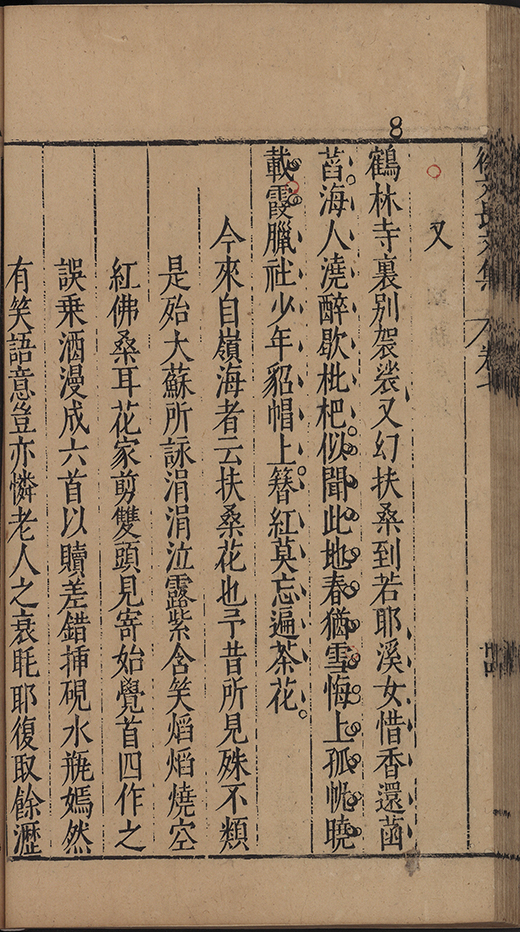 8
徐文長文集 卷七
又
鶴林寺裏别袈裟又幻扶桑到若耶溪女惜香還菡
萏海人澆醉歇枇杷似聞此地春猶雪悔上孤帆曉
載霞臘社少年貂帽上簪紅莫忘遍茶花
今來自嶺海者云扶桑花也予昔所見殊不類
是殆大蘇所詠涓涓泣露紫含笑焰焰燒空
紅佛桑耳花家剪雙頭見寄始覺首四作之
誤乗酒漫成六首以贖差錯揷硯水瓶嫣然
有笑語意豈亦憐老人之衰眊耶復取餘瀝